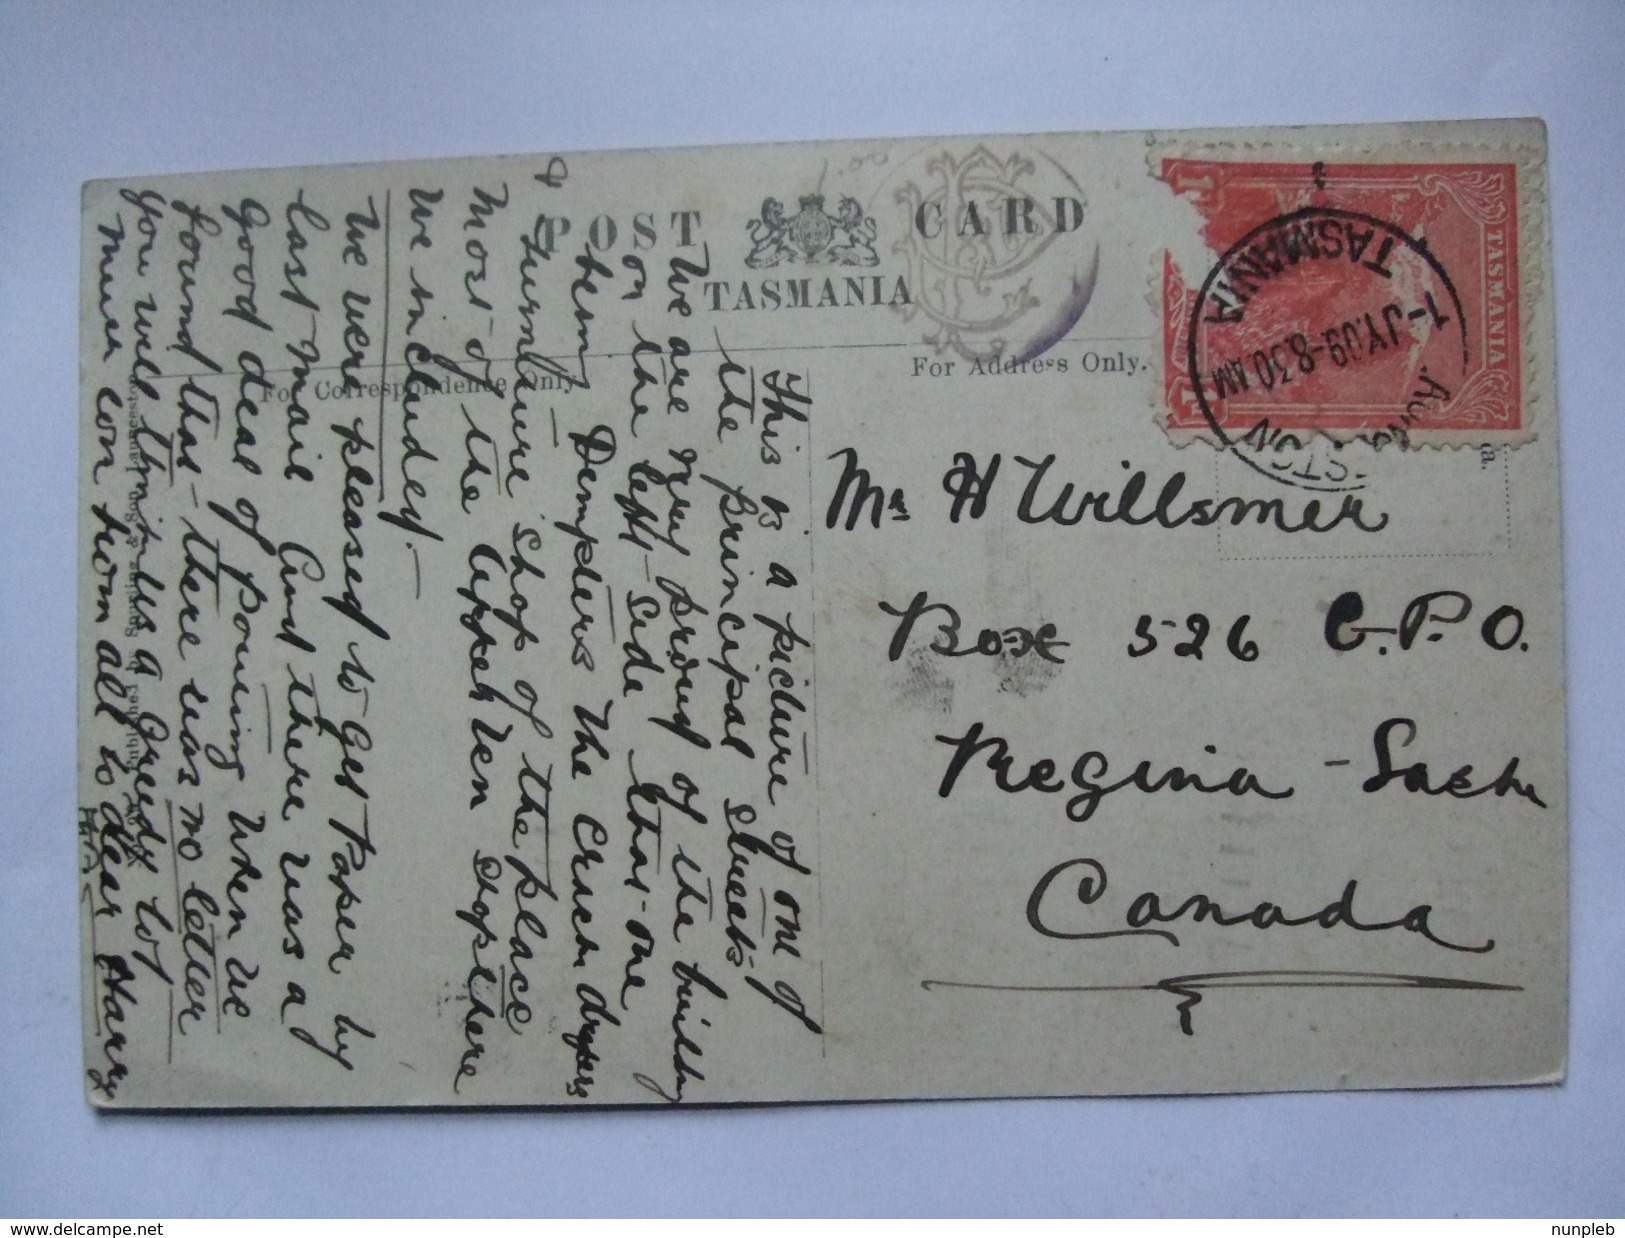 POST CARD
TASMANIA
For Correspondence Only.
For Address Only.
TASMANIA
TASMANIA
1-JY.09-8.30AM
This is a picture of one of
the principal streets.
We are very proud of the building
on the left side that one
them Dempsters the Crach drapers
& Furniture shop of the place
Most of the Upper Ten shop there
We included.—
We were pleased to get Paper by
last mail And there was a
good deal of pouring when we
found that there was no letter
you will think us a greedy lot
Much love from all to dear Harry
Mr H Willsmer
Box 526 G.P.O.
Regina - Sask
Canada
Published by Spurling & Son, Launceston
delcampe.net
nunpleb